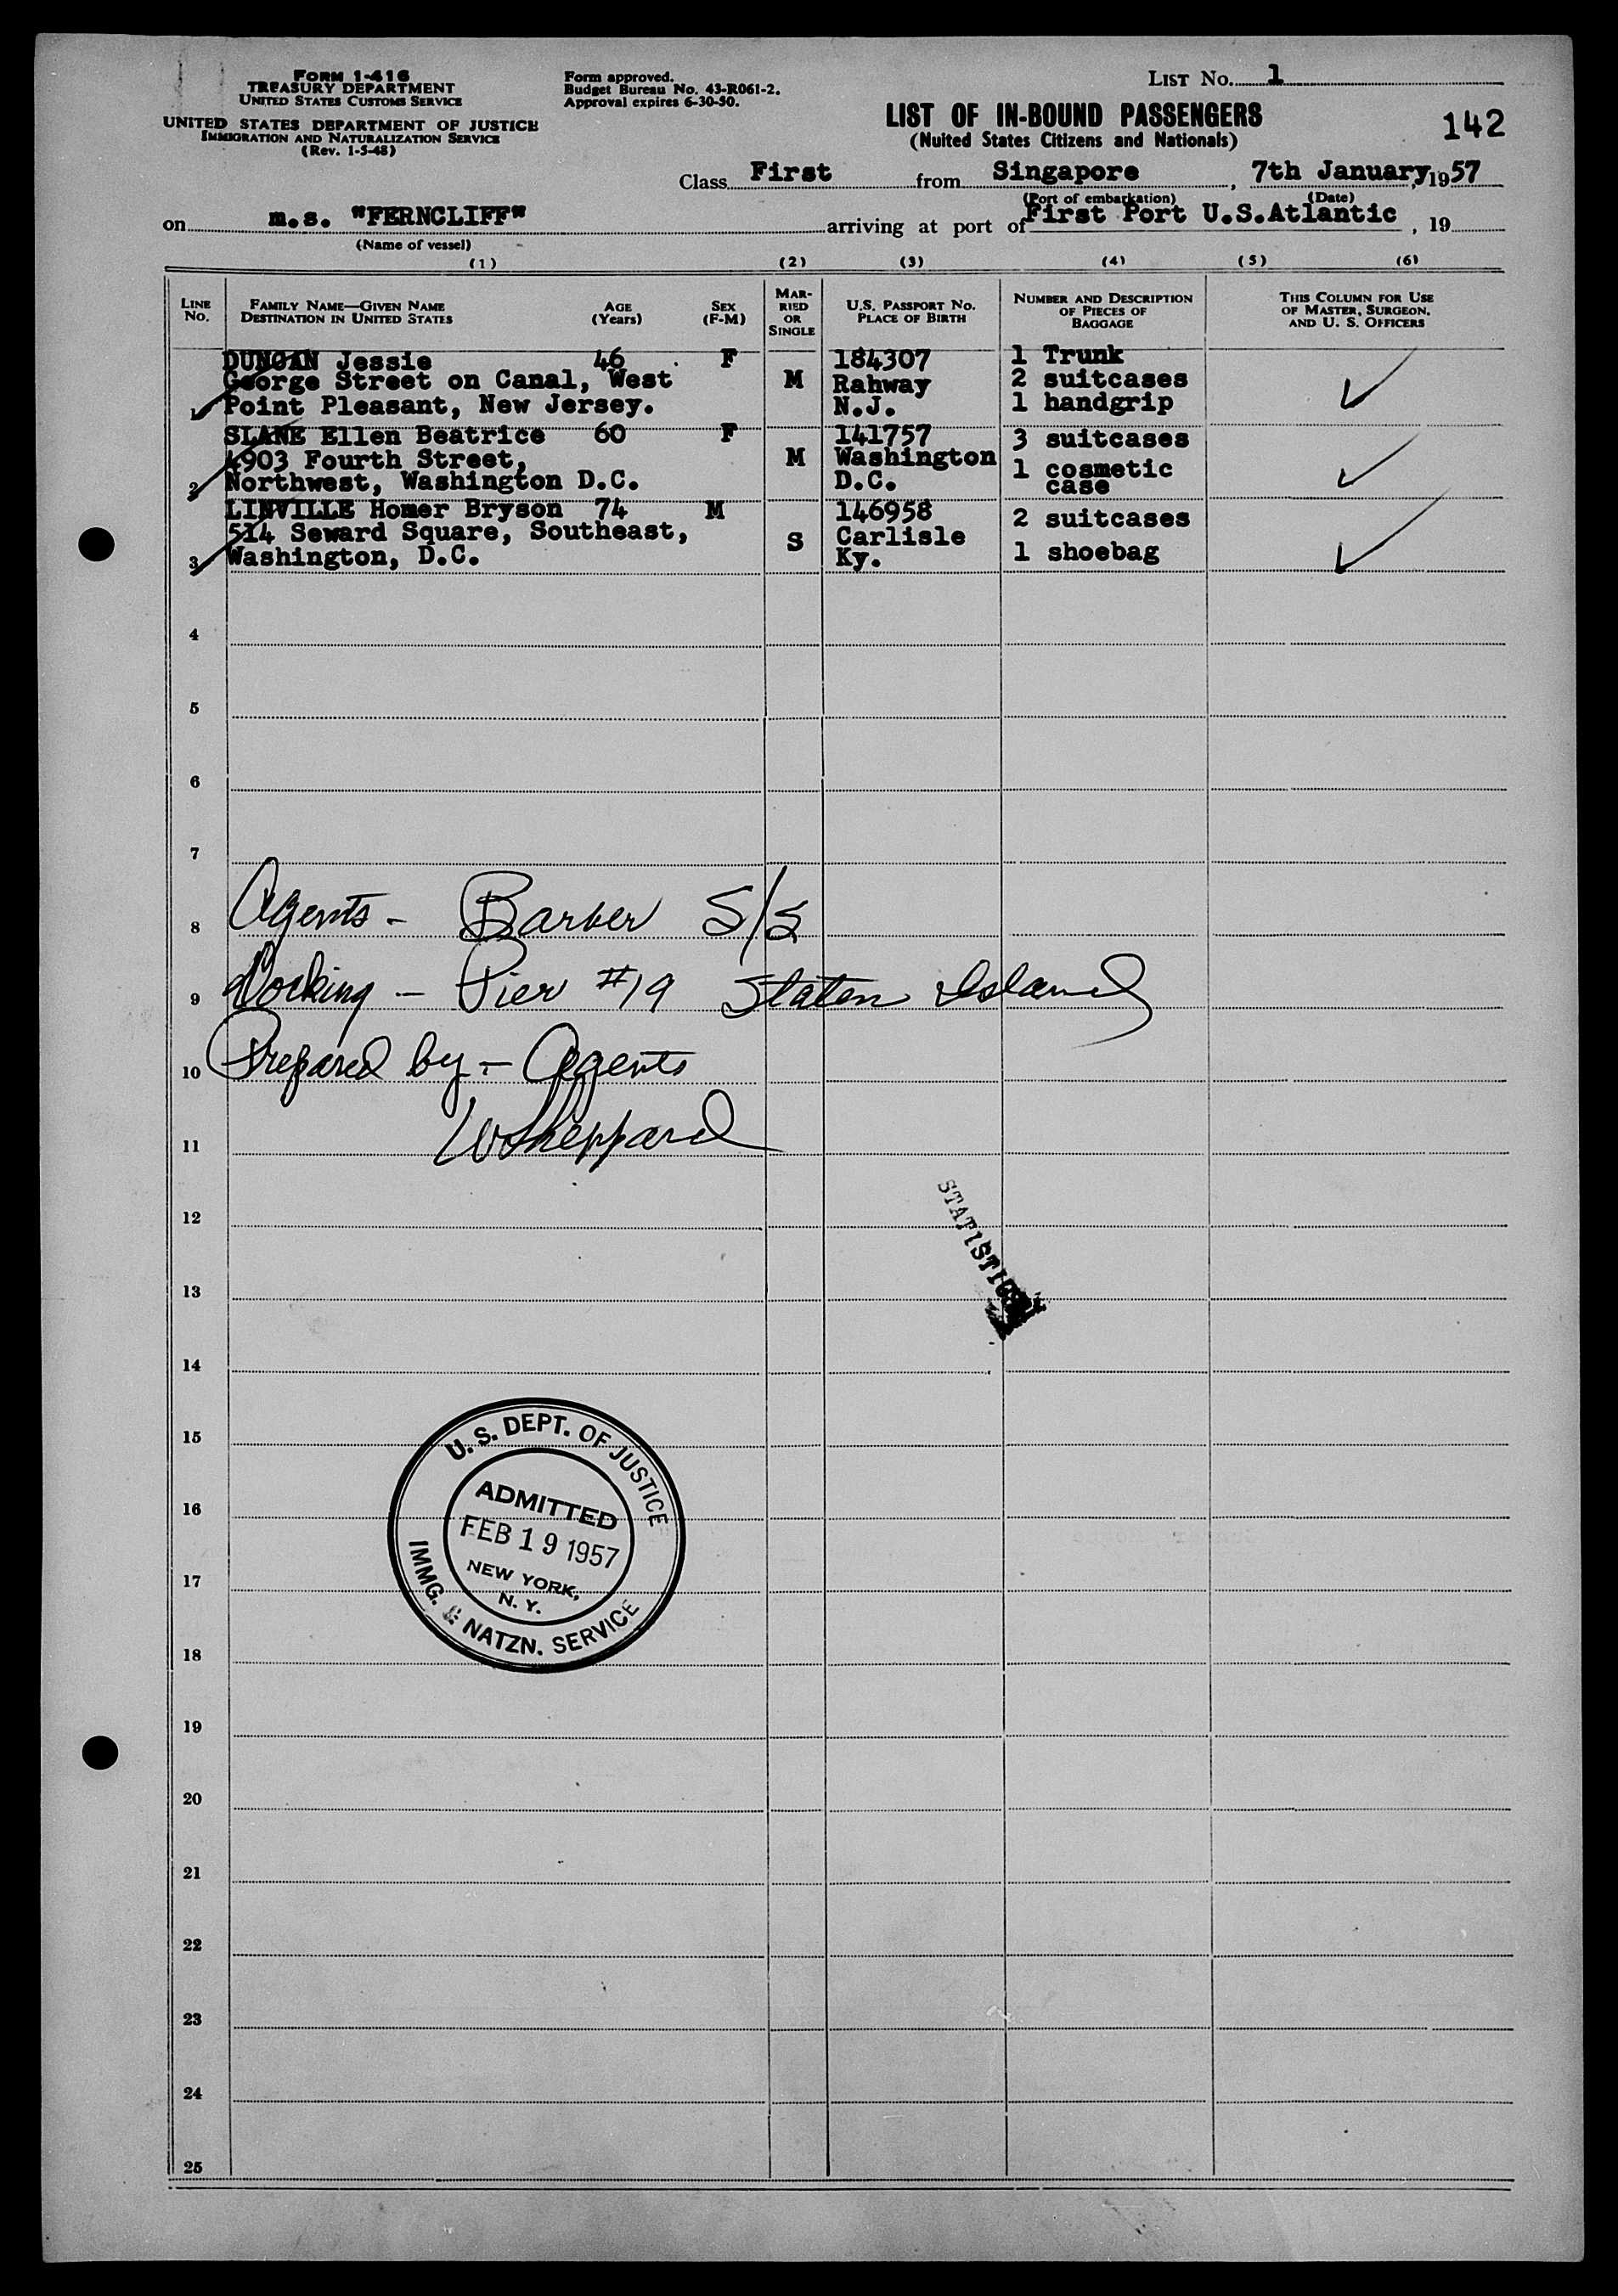 FORM I-416
TREASURY DEPARTMENT
UNITED STATES CUSTOMS SERVICE
UNITED STATES DEPARTMENT OF JUSTICE
IMMIGRATION AND NATURALIZATION SERVICE
(Rev. 1-5-48)
Form approved.
Budget Bureau No. 43-R061-2.
Approval expires 6-30-50.
LIST No. 1
LIST OF IN-BOUND PASSENGERS
(Nuited States Citizens and Nationals)
142
Class First from Singapore, 7th January, 1957
(Port of embarkation) (Date)
on m.s. "FERNCLIFF" arriving at port of First Port U.S.Atlantic, 19
(Name of vessel)
(1) (2) (3) (4) (5) (6)
LINE No. FAMILY NAME—GIVEN NAME DESTINATION IN UNITED STATES AGE (Years) SEX (F-M) MARRIED OR SINGLE U.S. PASSPORT NO. PLACE OF BIRTH NUMBER AND DESCRIPTION OF PIECES OF BAGGAGE THIS COLUMN FOR USE OF MASTER, SURGEON, AND U. S. OFFICERS
DUNCAN Jessie 46 F 184307 1 Trunk
George Street on Canal, West M Rahway 2 suitcases
1 Point Pleasant, New Jersey. N.J. 1 handgrip
SLANE Ellen Beatrice 60 F 141757 3 suitcases
4903 Fourth Street, M Washington 1 cosmetic
2 Northwest, Washington D.C. D.C. case
LINVILLE Homer Bryson 74 M 146958 2 suitcases
514 Seward Square, Southeast, S Carlisle
3 Washington, D.C. Ky. 1 shoebag
4
5
6
7
8 Agents - Barber S/S
9 Docking - Pier #19 Staten Island
10 Prepared by - Agents
11 WSheppard
12
STATISTICAL
13
14
15
16
17
18
U. S. DEPT. OF JUSTICE
ADMITTED
FEB 19 1957
NEW YORK,
N. Y.
IMMG. & NATZN. SERVICE
19
20
21
22
23
24
25